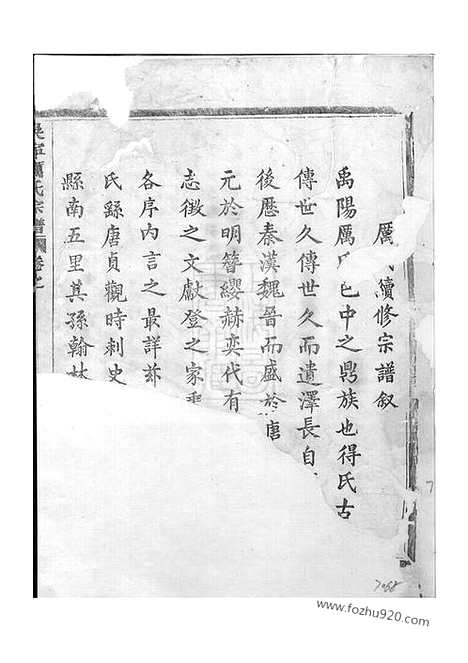 厲 續修宗譜叙
禹陽厲 邑中之鼎族也得氏古
傳世久傳世久而遺澤長自
後歷秦漢魏晉而盛於唐
元於明簪纓赫奕代有
志徵之文獻登之家乘
各序内言之最詳茲
氏繇唐貞觀時刺史
縣南五里其孫翰林
吳寧厲氏宗譜 卷之
7068
www.fozhu920.com